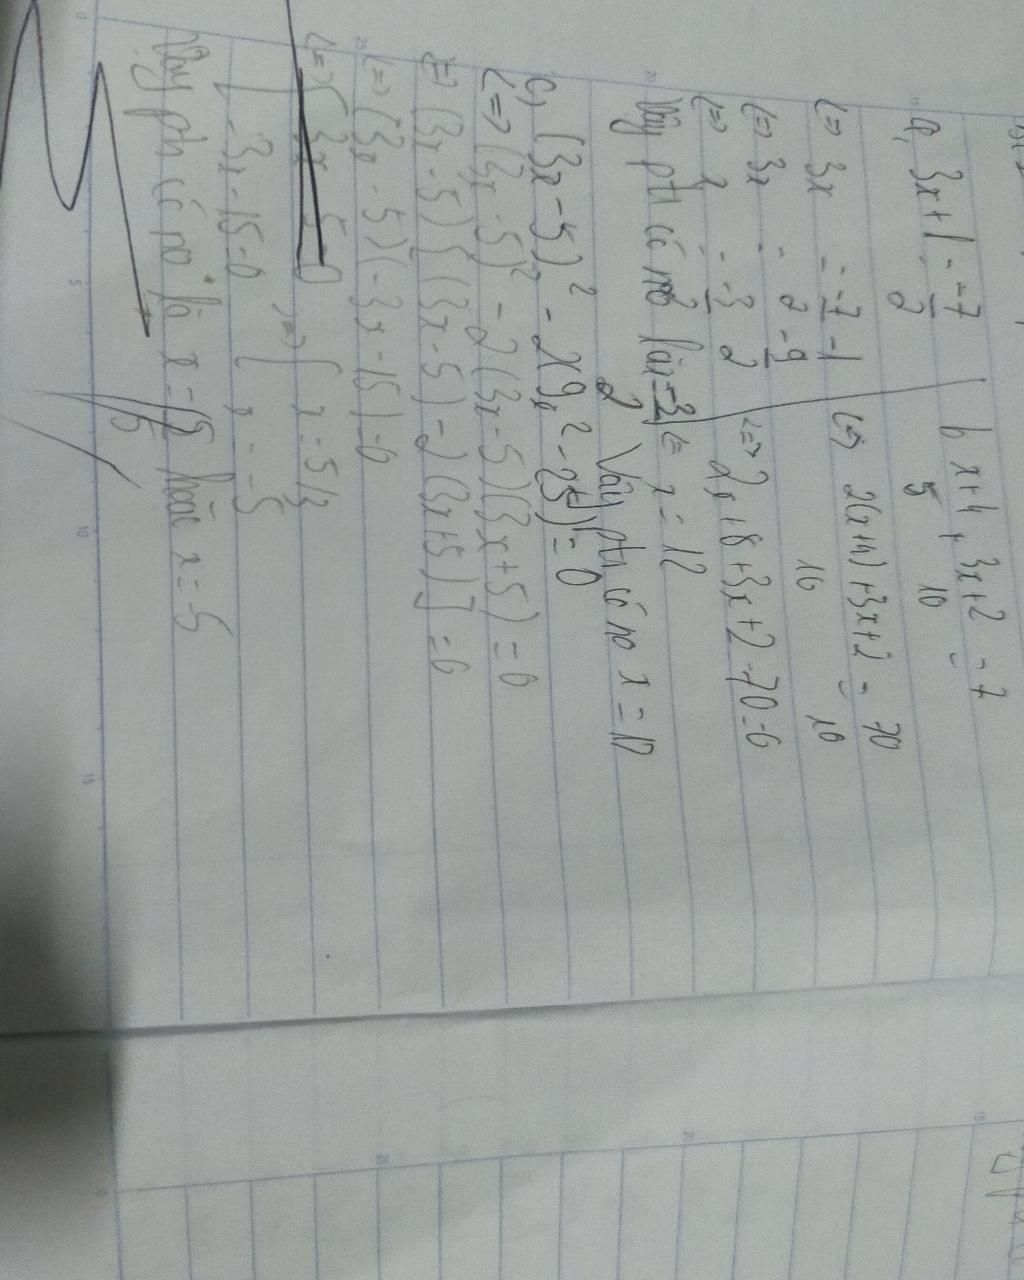 a, 3x+1 = -7/2
<=> 3x = -7/2 - 1
<=> 3x = -9/2
<=> x = -3/2
Vậy pt có no là -3/2
b x+4/5 + 3x+2/10 = 7
<=> 2(x+4)+3x+2/10 = 70/10
<=> 2x+8+3x+2-70=0
<=> x = 12
Vậy pt có no x = 12
c, (3x-5)² - 2(9x² - 25) = 0
<=> (3x-5)² - 2(3x-5)(3x+5) = 0
<=> (3x-5)[(3x-5) - 2(3x+5)] = 0
<=> (3x-5)(-3x-15) = 0
<=> [ 3x-5=0
-3x-15=0
<=> [ x = 5/3
x = -5
Vậy pt có no là x = 5 hoặc x = -5